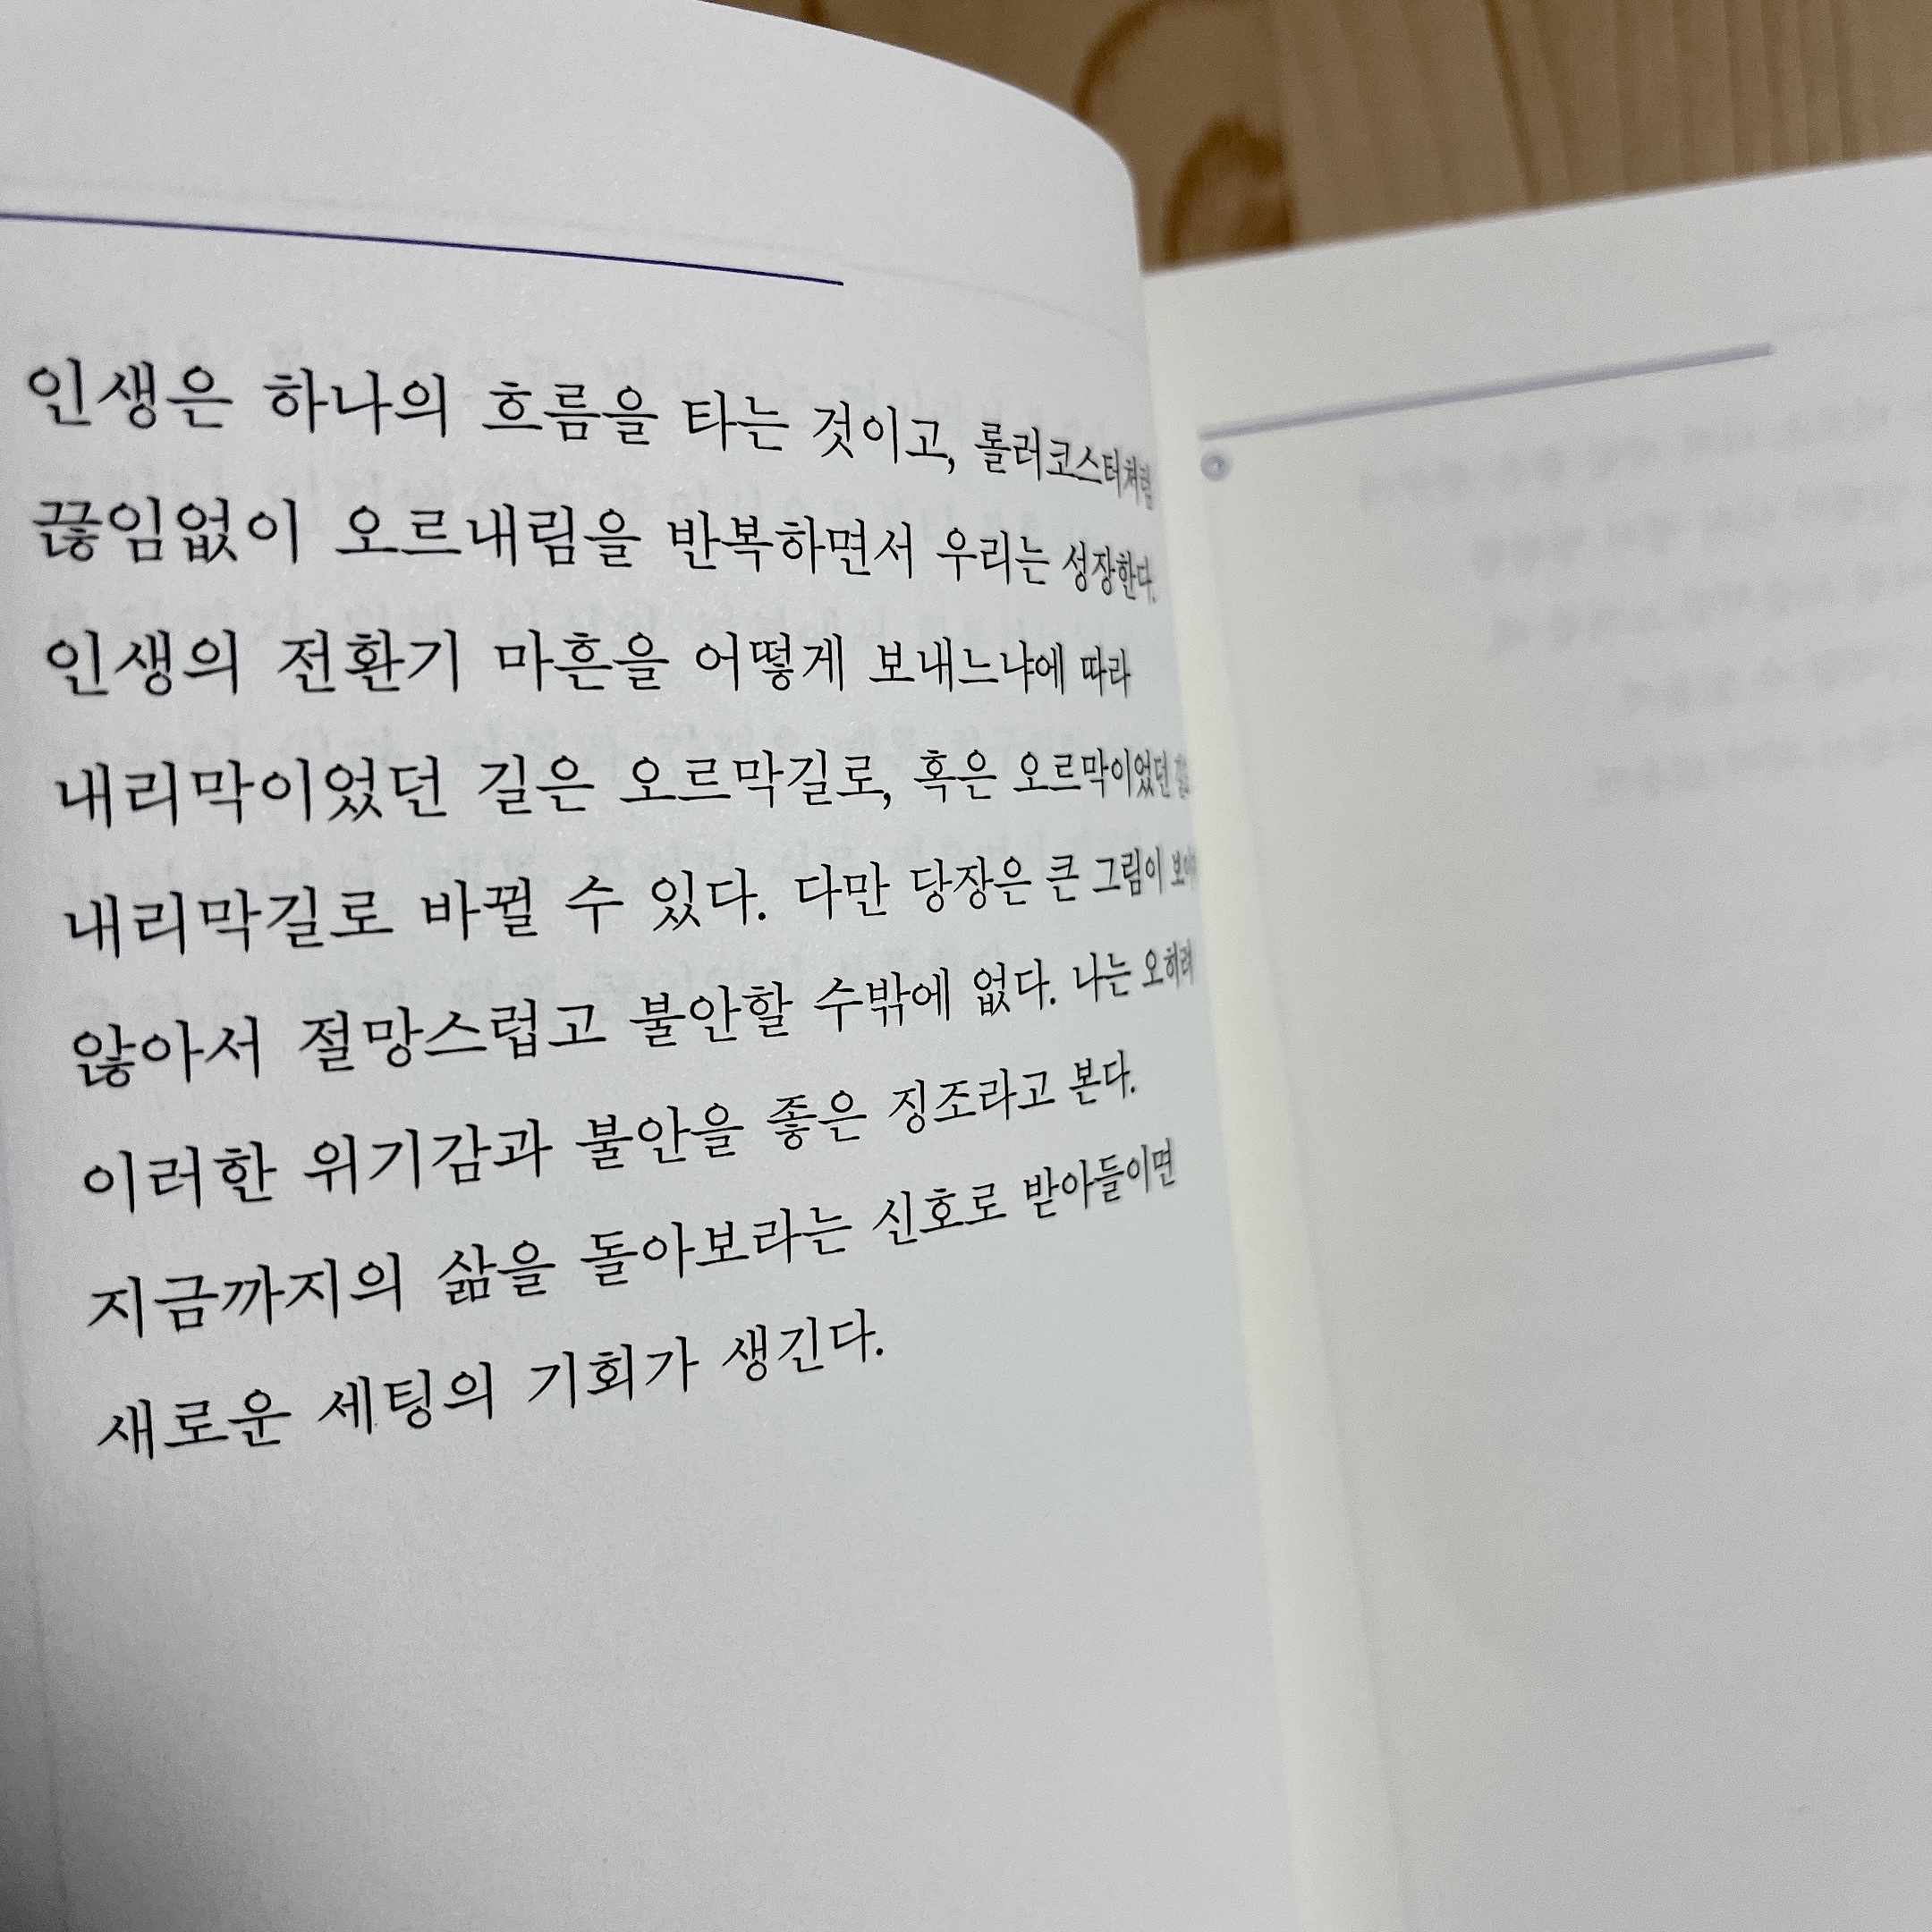 인생은 하나의 흐름을 타는 것이고, 롤러코스터처럼
끊임없이 오르내림을 반복하면서 우리는 성장한다.
인생의 전환기 마흔을 어떻게 보내느냐에 따라
내리막이었던 길은 오르막길로, 혹은 오르막이었던
내리막길로 바뀔 수 있다. 다만 당장은 큰 그림이
않아서 절망스럽고 불안할 수밖에 없다. 나는 오히려
이러한 위기감과 불안을 좋은 징조라고 본다.
지금까지의 삶을 돌아보라는 신호로 받아들이면
새로운 세팅의 기회가 생긴다.